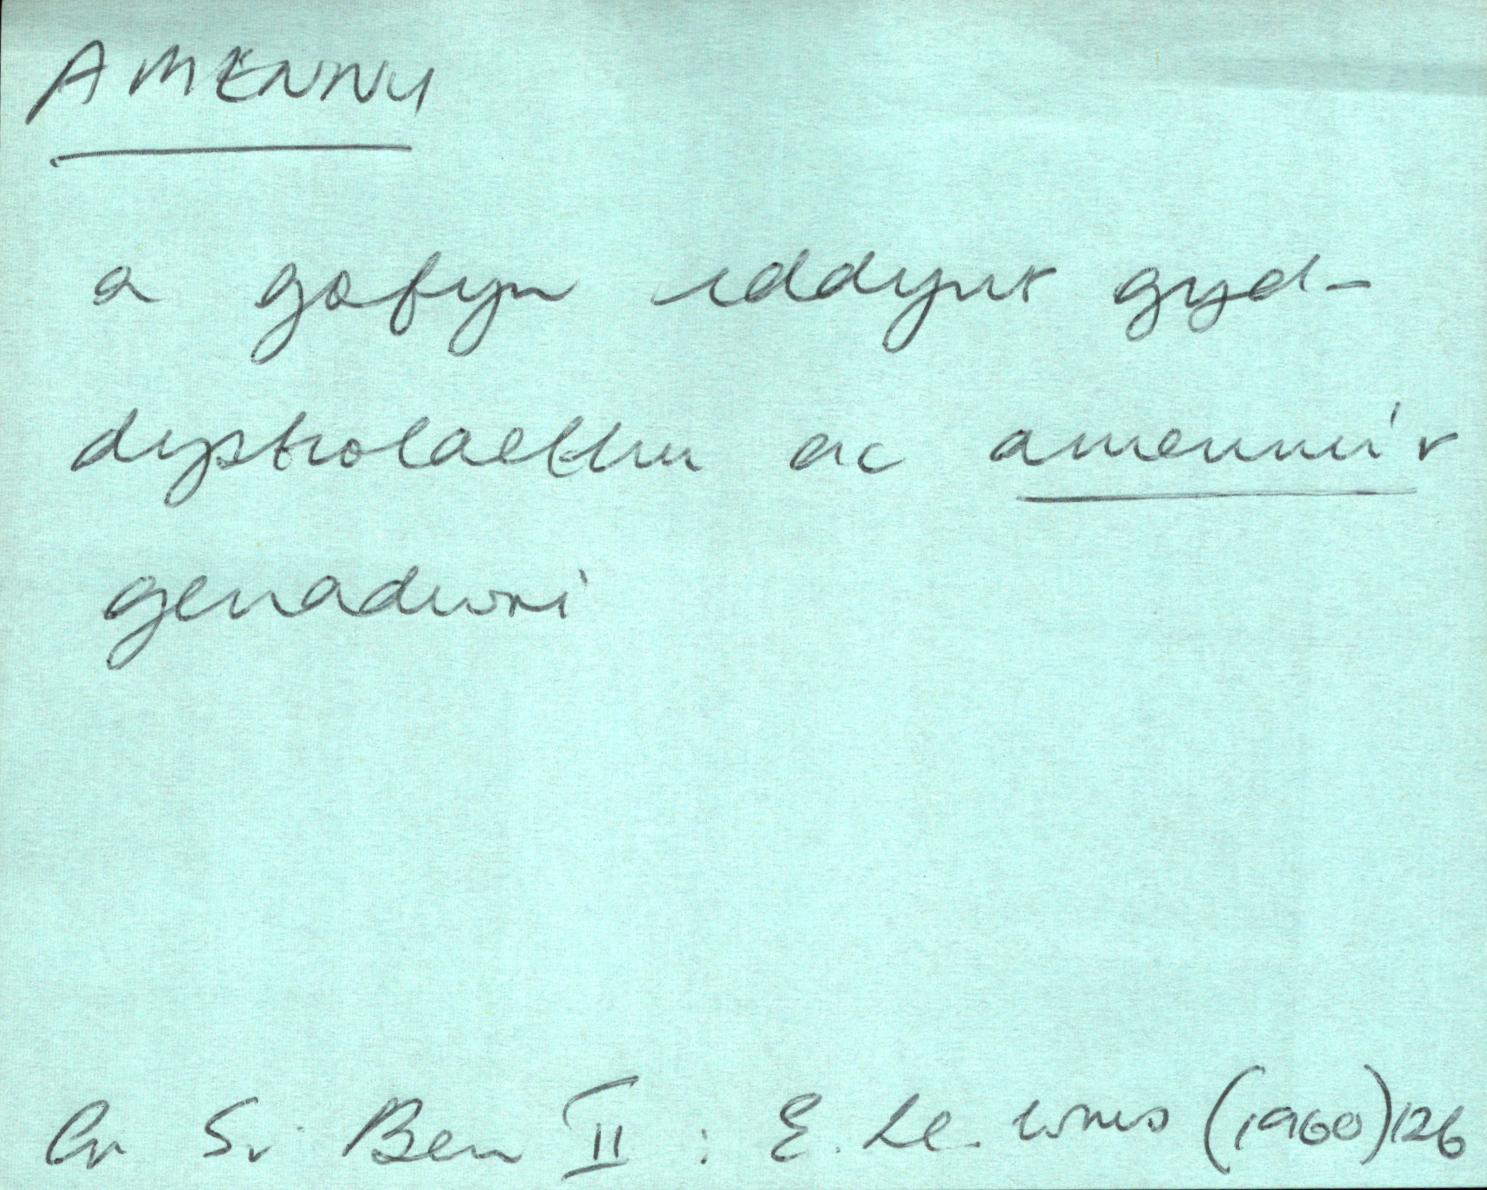 AMENNU
a gofyn iddynt gyd-
dystiolaethu ac amennu'r
genadwri
Cr. Sir Ben II : E. Ll. Wms (1960) 126